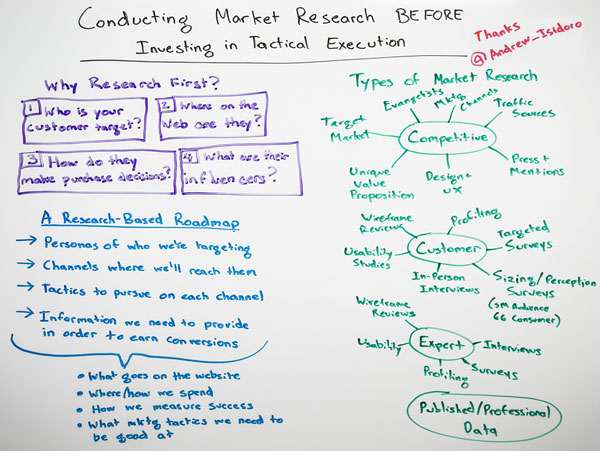 Conducting Market Research BEFORE
Investing in Tactical Execution
Thanks
@Andrew_Isidoro
Why Research First?
1 Who is your
customer target?
2 Where on the
web are they?
3 How do they
make purchase decisions?
4 What are their
influencers?
A Research-Based Roadmap
→ Personas of who we're targeting
→ Channels where we'll reach them
→ Tactics to pursue on each channel
→ Information we need to provide
in order to earn conversions
• What goes on the website
• Where/how we spend
• How we measure success
• What mktg tactics we need to
be good at
Types of Market Research
Competitive
Target
Market
Evangelists
Mktg
Channels
Traffic
Sources
Press +
Mentions
Design +
UX
Unique
Value
Proposition
Customer
Wireframe
Reviews
Profiling
Targeted
Surveys
Sizing/Perception
Surveys
(SM Audience
GG Consumer)
In-Person
Interviews
Usability
Studies
Expert
Wireframe
Reviews
Interviews
Surveys
Profiling
Usability
Published/Professional
Data